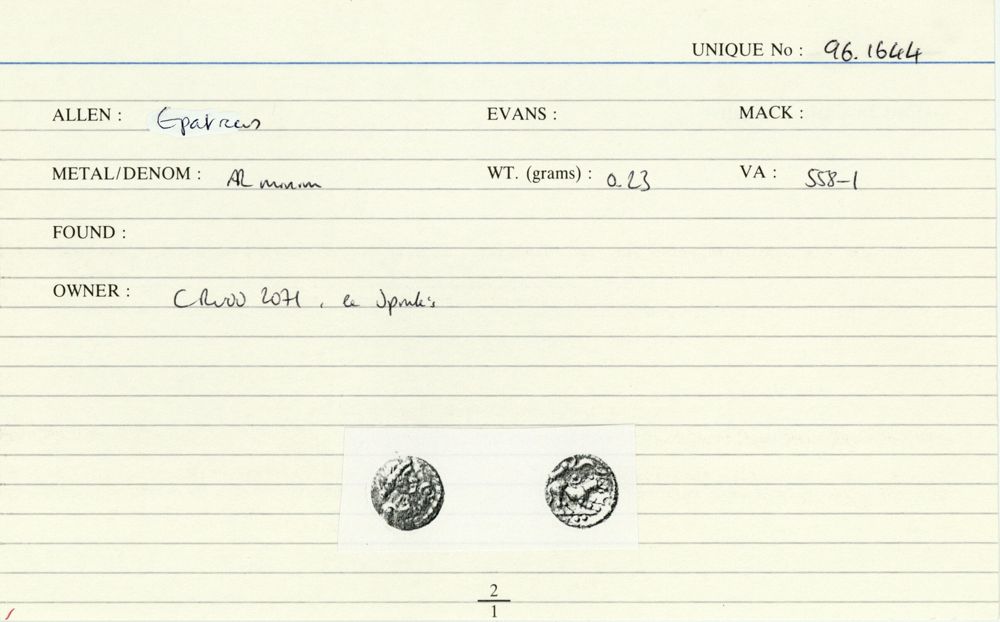 UNIQUE No : 96.1644
ALLEN : Epaticcus EVANS : MACK :
METAL/DENOM : AR minim WT. (grams) : 0.23 VA : 558-1
FOUND :
OWNER : CR 2071
2
1